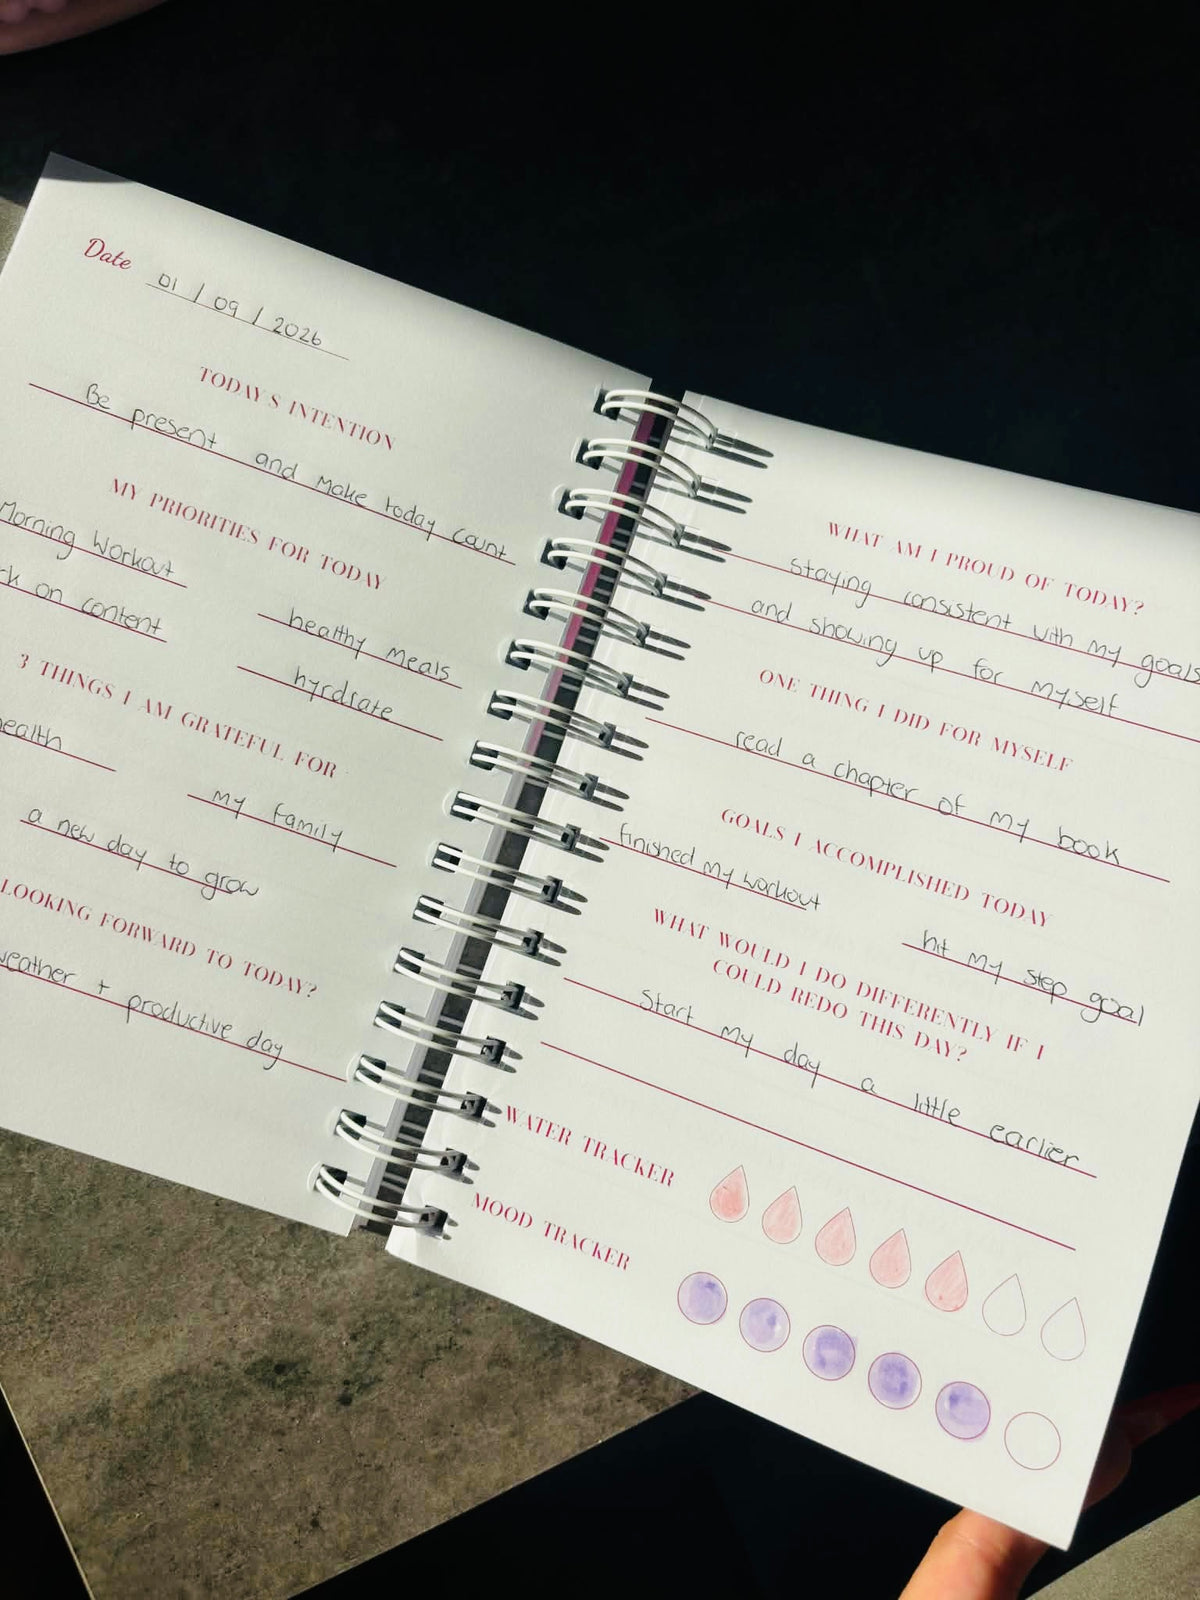 Date 01 / 09 / 2026
TODAY'S INTENTION
Be present and make today count
MY PRIORITIES FOR TODAY
Morning Workout
healthy meals
on content
hyrdrate
3 THINGS I AM GRATEFUL FOR
my family
a new day to grow
LOOKING FORWARD TO TODAY?
+ productive day
WHAT AM I PROUD OF TODAY?
staying consistent with my goals
and showing up for myself
ONE THING I DID FOR MYSELF
read a chapter of my book
GOALS I ACCOMPLISHED TODAY
finished my workout
hit my step goal
WHAT WOULD I DO DIFFERENTLY IF I
COULD REDO THIS DAY?
Start my day a little earlier
WATER TRACKER
MOOD TRACKER